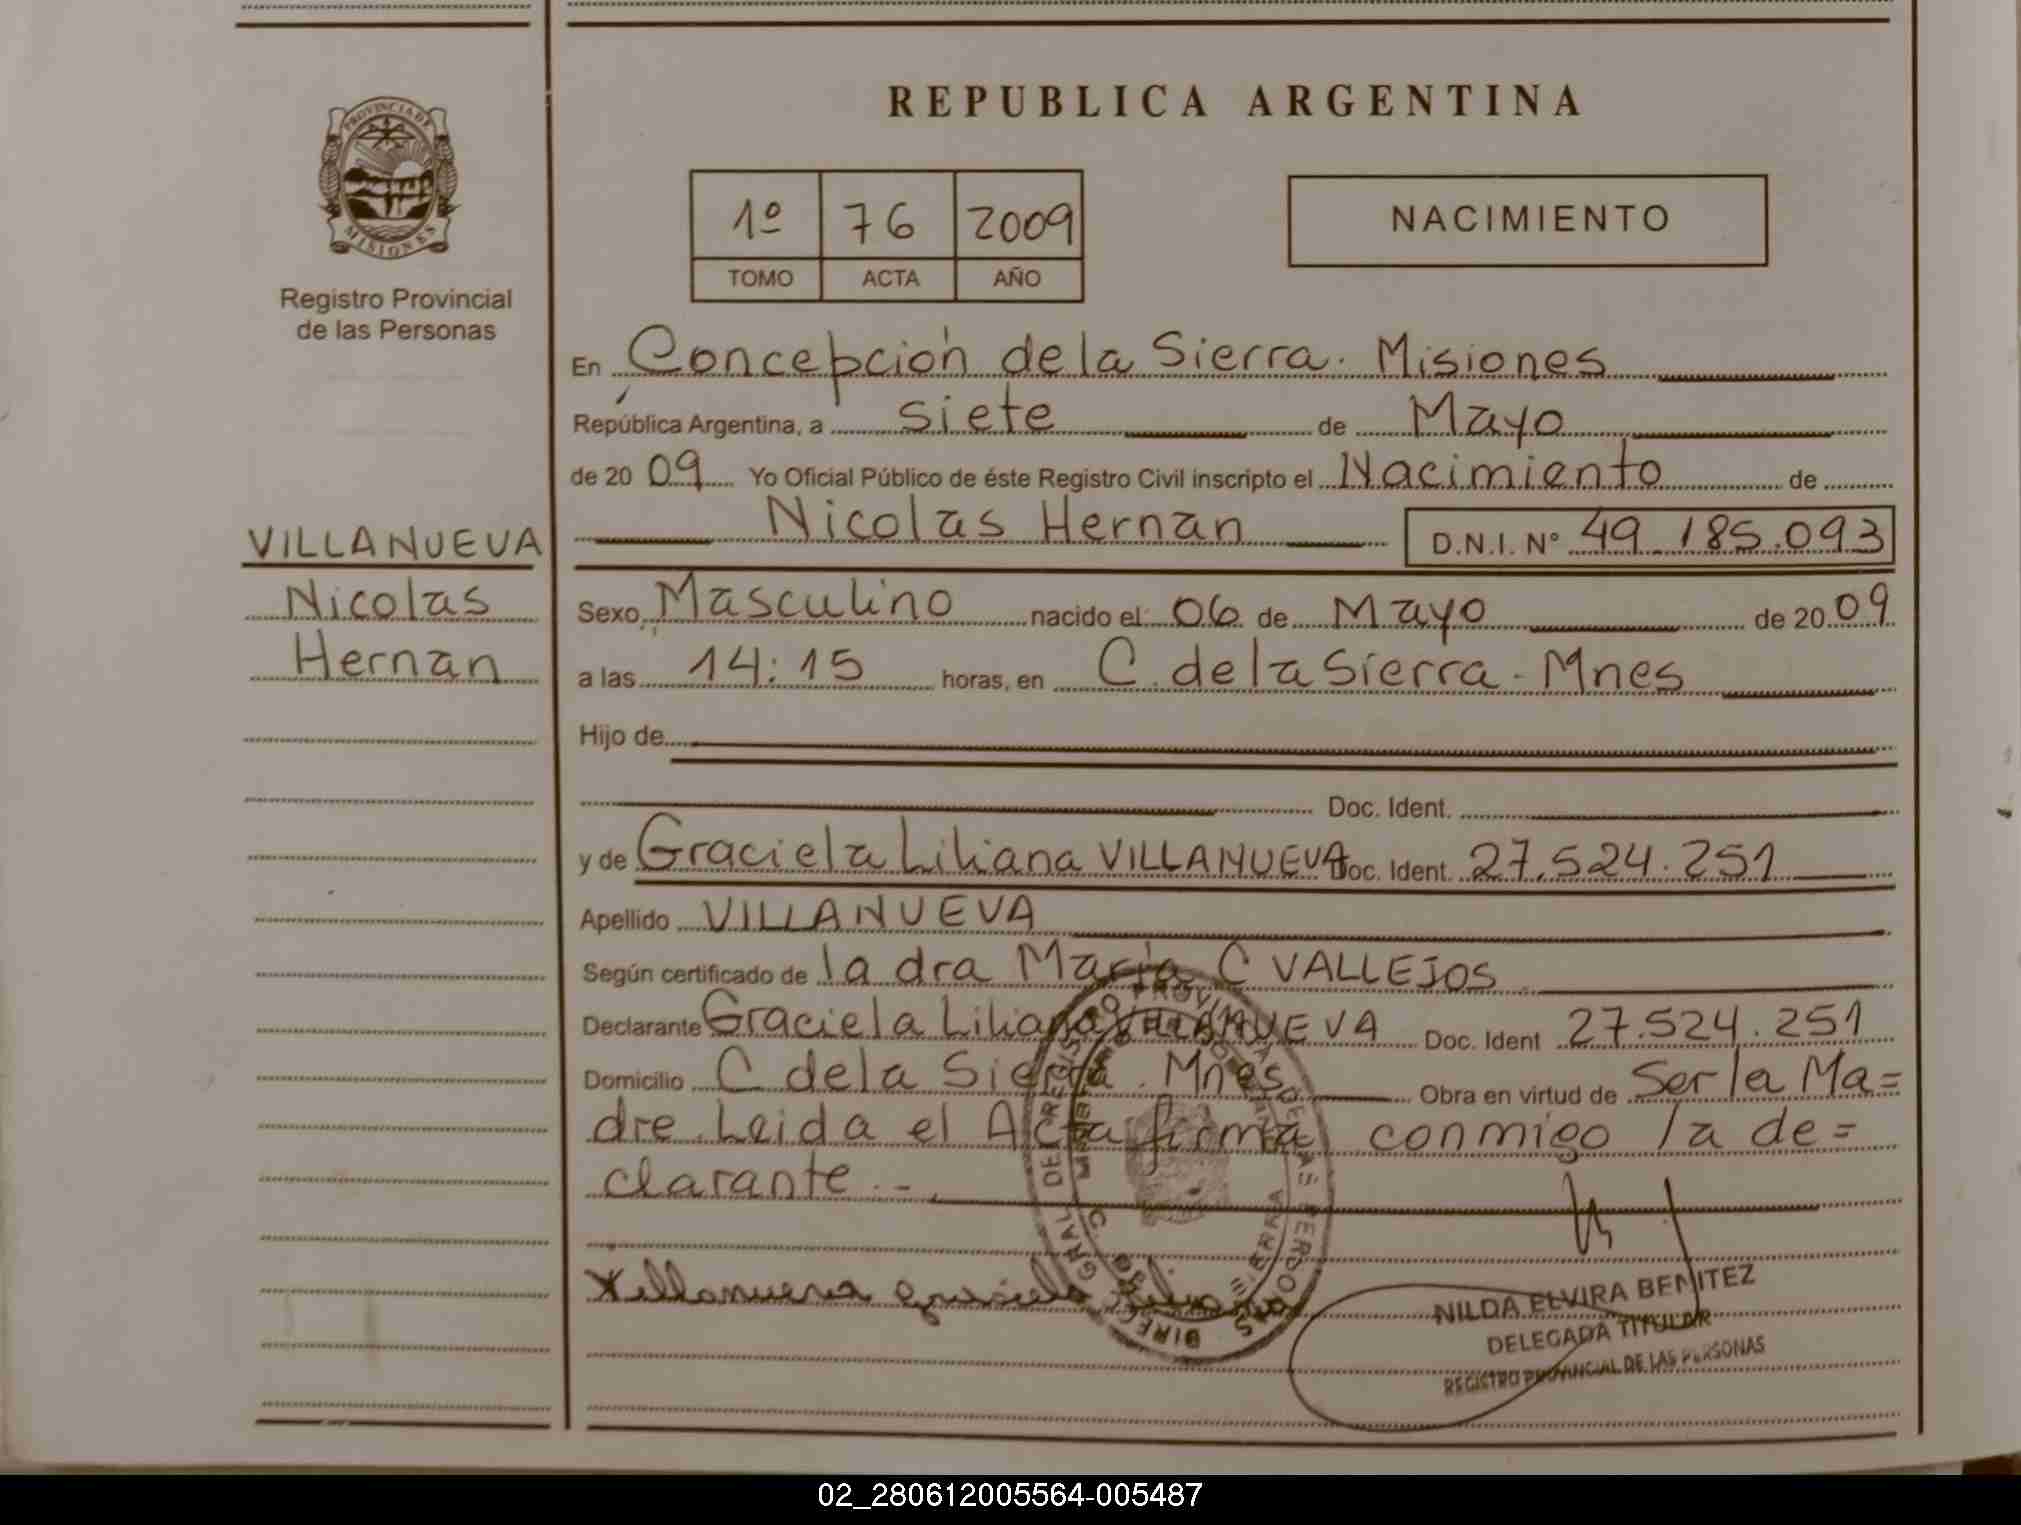 REPUBLICA ARGENTINA
PROVINCIA DE
MISIONES
Registro Provincial
de las Personas
1º 76 2009
TOMO ACTA AÑO
NACIMIENTO
En Concepción de la Sierra. Misiones
República Argentina, a siete de Mayo
de 2009 Yo Oficial Público de éste Registro Civil inscripto el Nacimiento de
Nicolas Hernan D.N.I. Nº 49.185.093
VILLANUEVA
Nicolas
Hernan
Sexo Masculino nacido el 06 de Mayo de 2009
a las 14:15 horas, en C. de la Sierra - Mnes
Hijo de
Doc. Ident.
y de Graciela Liliana VILLANUEVA Doc. Ident. 27.524.251
Apellido VILLANUEVA
Según certificado de la dra María C VALLEJOS
Declarante Graciela Liliana VILLANUEVA Doc. Ident 27.524.251
Domicilio C de la Sierra. Mnes Obra en virtud de Ser la Ma=
dre. Leida el Acta firma conmigo la de=
clarante.-
Villanueva graciela liliana
NILDA ELVIRA BENITEZ
DELEGADA TITULAR
REGISTRO PROVINCIAL DE LAS PERSONAS
02_280612005564-005487